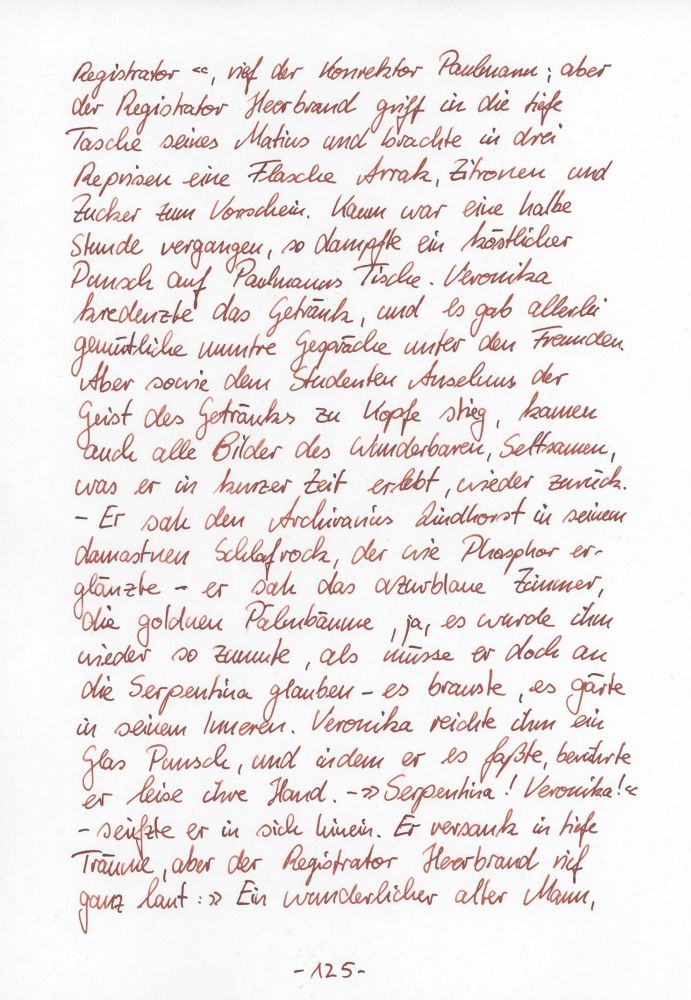 Registrator «, rief der Konrektor Paulmann; aber
der Registrator Heerbrand griff in die tiefe
Tasche seines Matins und brachte in drei
Reprisen eine Flasche Arrak, Zitronen und
Zucker zum Vorschein. Kaum war eine halbe
Stunde vergangen, so dampfte ein köstlicher
Punsch auf Paulmanns Tische. Veronika
kredenzte das Getränk, und es gab allerlei
gemütliche muntre Gespräche unter den Freunden.
Aber sowie dem Studenten Anselmus der
Geist des Getränks zu Kopfe stieg, kamen
auch alle Bilder des Wunderbaren, Seltsamen,
was er in kurzer Zeit erlebt, wieder zurück.
– Er sah den Archivarius Lindhorst in seinem
damastnen Schlafrock, der wie Phosphor er-
glänzte – er sah das azurblaue Zimmer,
die goldnen Palmbäume, ja, es wurde ihm
wieder so zumute, als müsse er doch an
die Serpentina glauben – es brauste, es gärte
in seinem Inneren. Veronika reichte ihm ein
Glas Punsch, und indem er es faßte, berührte
er leise ihre Hand. – » Serpentina! Veronika! «
– seufzte er in sich hinein. Er versank in tiefe
Träume, aber der Registrator Heerbrand rief
ganz laut: » Ein wunderlicher alter Mann,
- 125 -